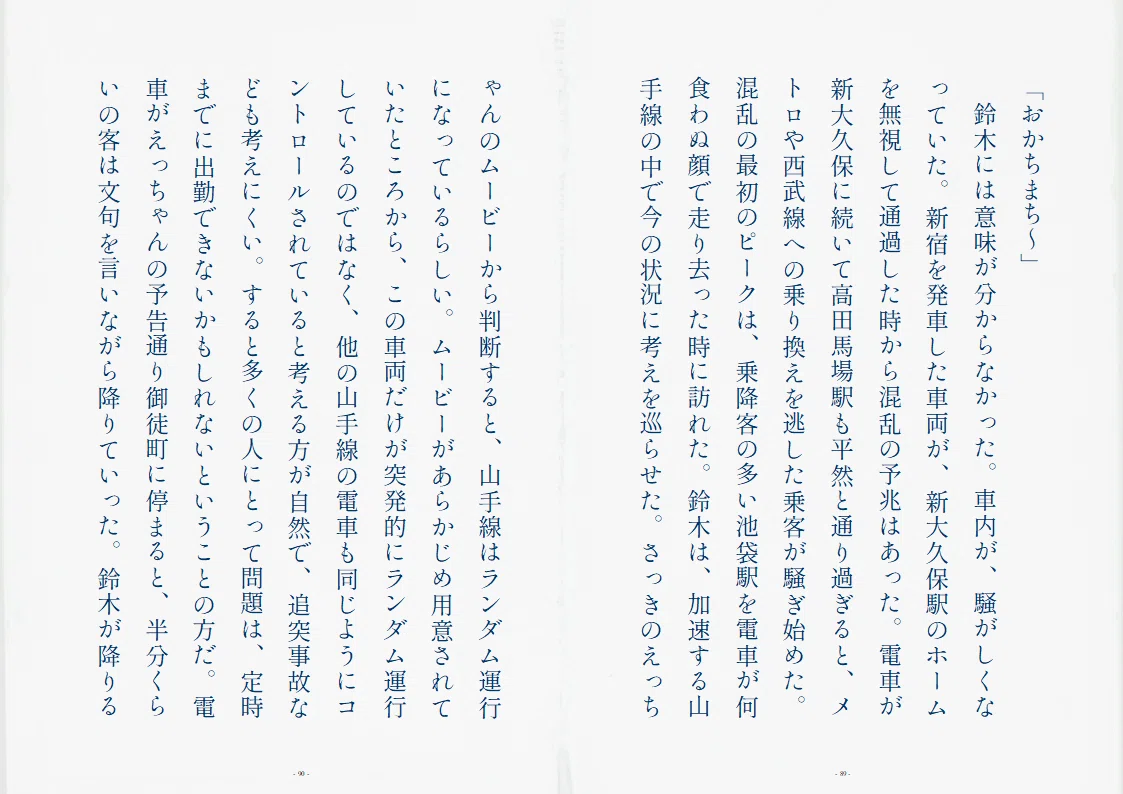 「おかちまち～」
鈴木には意味が分からなかった。車内が、騒がしくな
っていた。新宿を発車した車両が、新大久保駅のホーム
を無視して通過した時から混乱の予兆はあった。電車が
新大久保に続いて高田馬場駅も平然と通り過ぎると、メ
トロや西武線への乗り換えを逃した乗客が騒ぎ始めた。
混乱の最初のピークは、乗降客の多い池袋駅を電車が何
食わぬ顔で走り去った時に訪れた。鈴木は、加速する山
手線の中で今の状況に考えを巡らせた。さっきのえっち
- 89 -
ゃんのムービーから判断すると、山手線はランダム運行
になっているらしい。ムービーがあらかじめ用意されて
いたところから、この車両だけが突発的にランダム運行
しているのではなく、他の山手線の電車も同じようにコ
ントロールされていると考える方が自然で、追突事故な
ども考えにくい。すると多くの人にとって問題は、定時
までに出勤できないかもしれないということの方だ。電
車がえっちゃんの予告通り御徒町に停まると、半分くら
いの客は文句を言いながら降りていった。鈴木が降りる
- 90 -